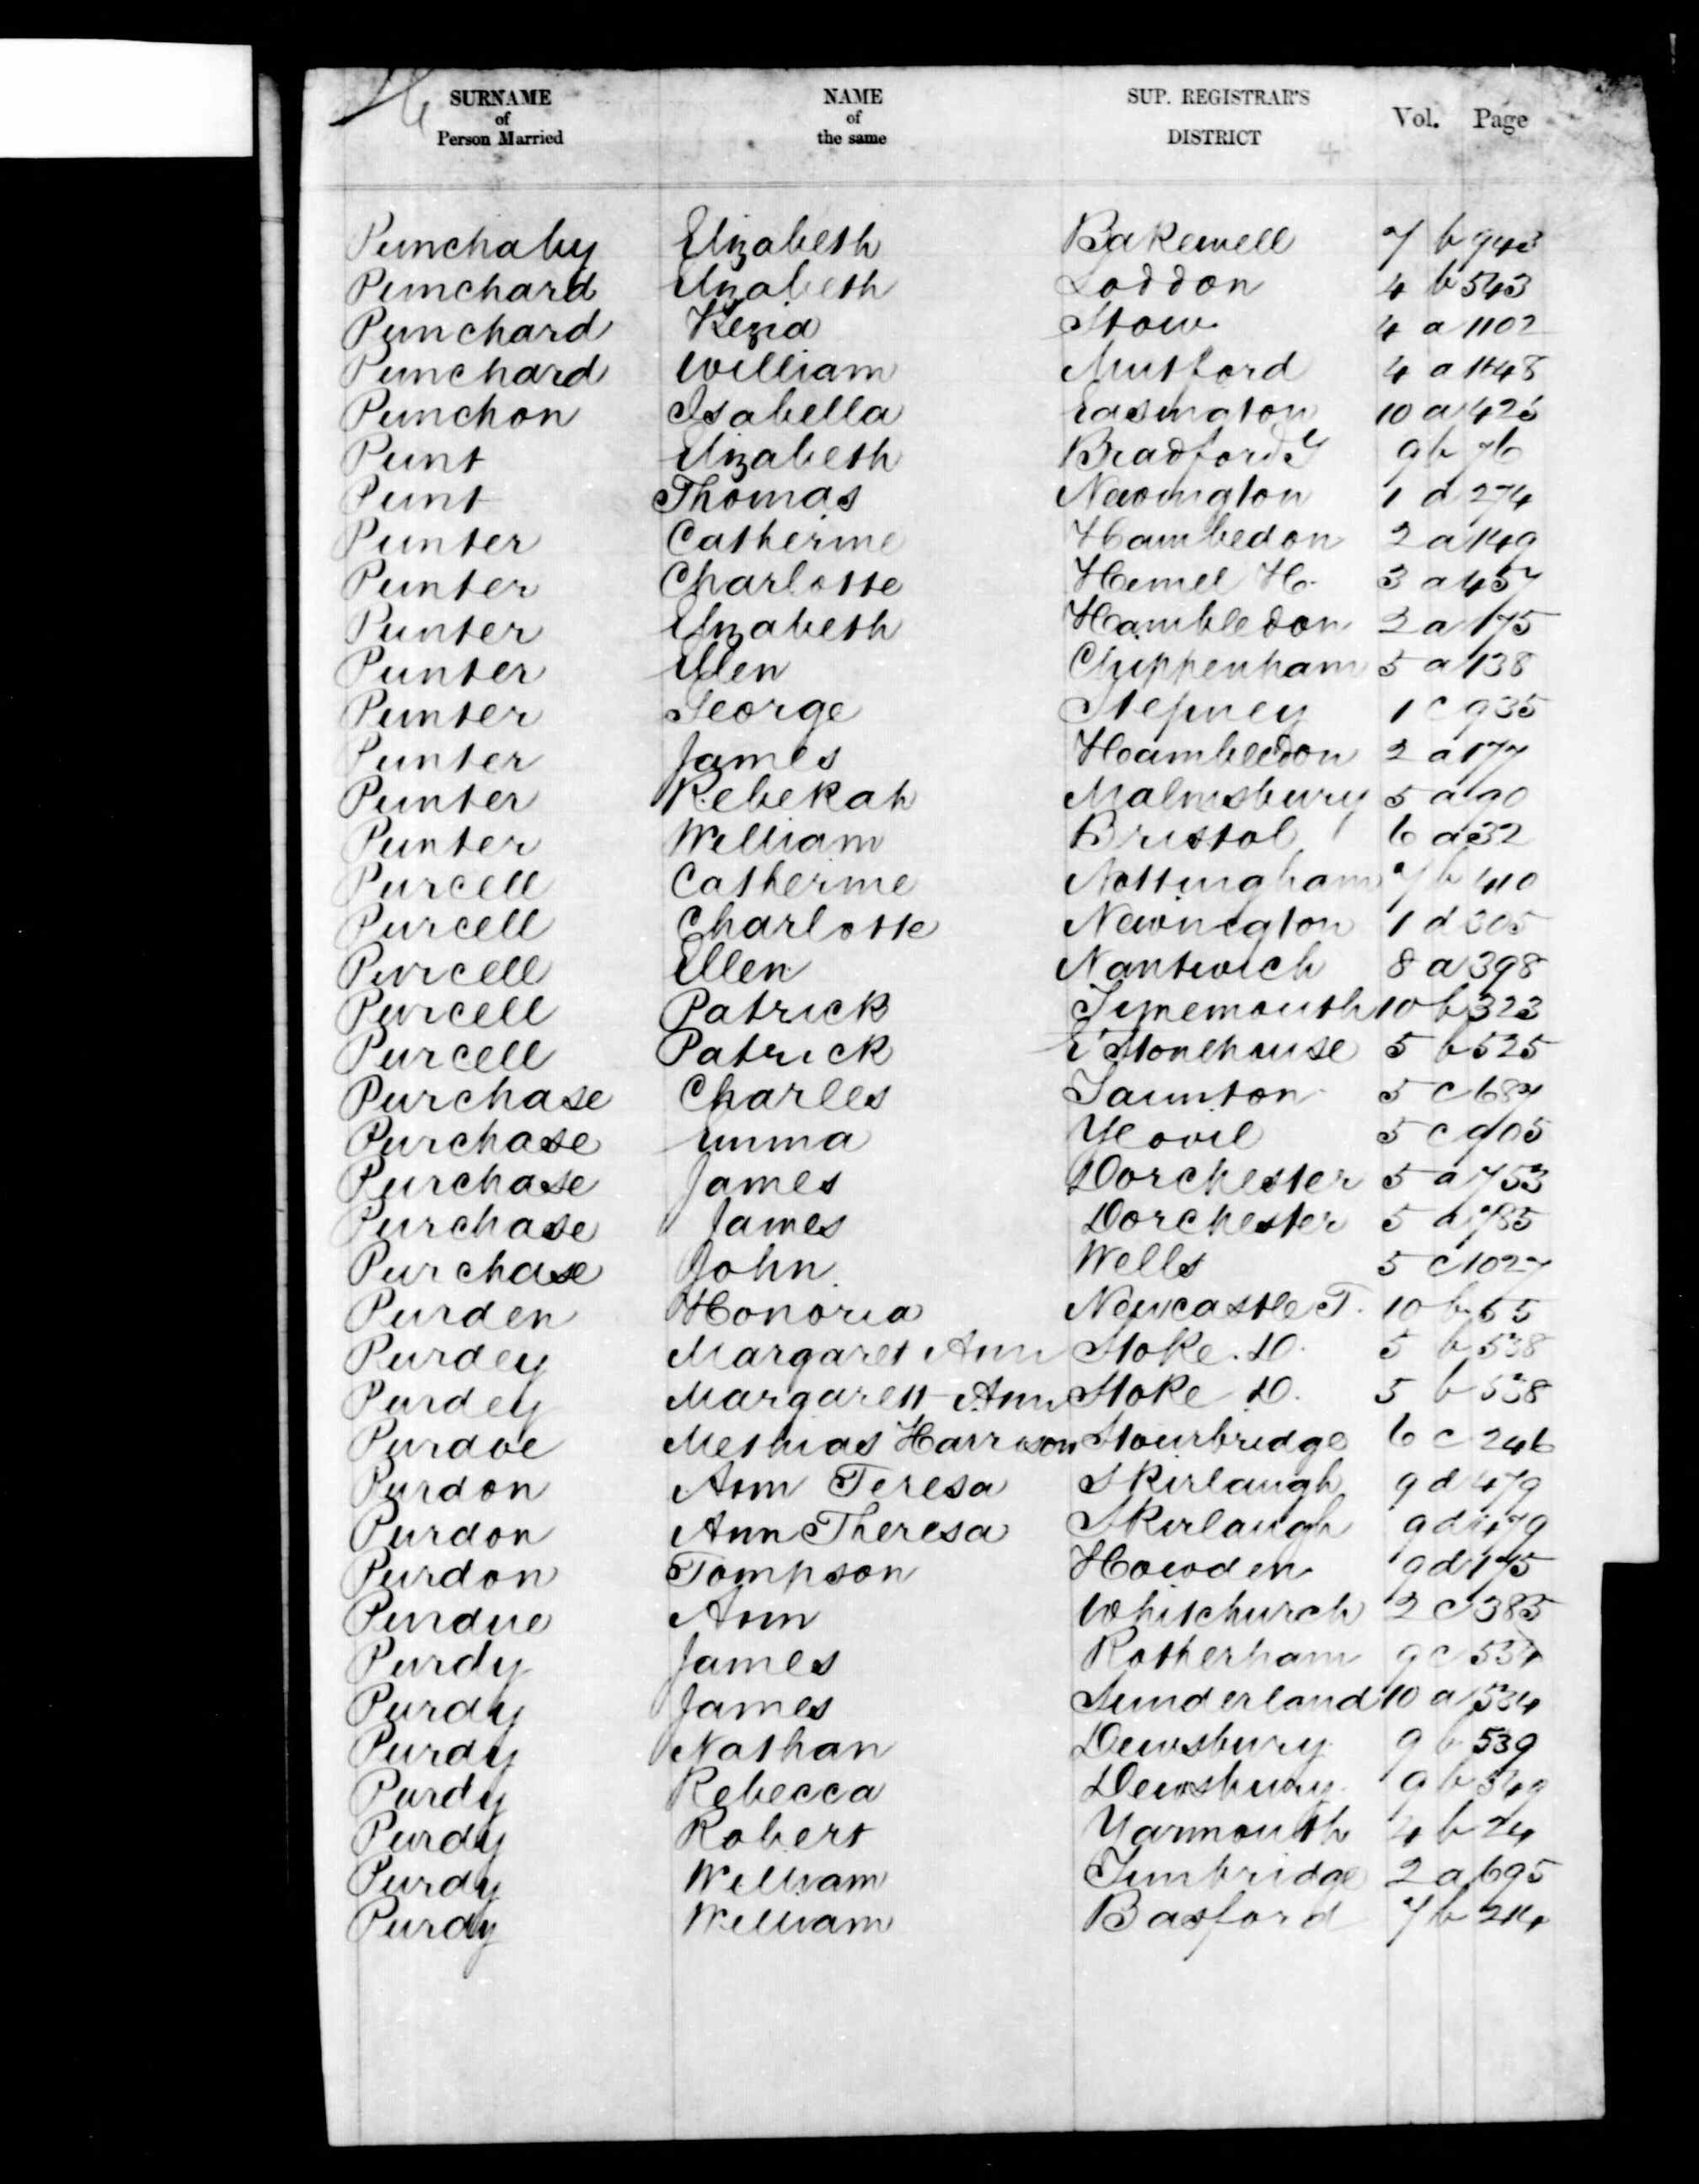 SURNAME of Person Married NAME of the same SUP. REGISTRAR'S DISTRICT Vol. Page
Punchaby Elizabeth Bakewell 7 b 943
Punchard Elizabeth Loddon 4 b 543
Punchard Kezia Stow 4 a 1102
Punchard William Mutford 4 a 1448
Punchon Isabella Easington 10 a 425
Punt Elizabeth Bradford Y 9 b 76
Punt Thomas Newington 1 d 274
Punter Catherine Hambedon 2 a 149
Punter Charlotte Hemel H. 3 a 457
Punter Elizabeth Hambledon 2 a 175
Punter Ellen Chippenham 5 a 138
Punter George Stepney 1 c 935
Punter James Hambledon 2 a 177
Punter Rebekah Malmsbury 5 a 90
Punter William Bristol 6 a 32
Purcell Catherine Nottingham 7 b 410
Purcell Charlotte Newington 1 d 305
Purcell Ellen Nantwich 8 a 398
Purcell Patrick Tynemouth 10 b 323
Purcell Patrick E Stonehouse 5 b 525
Purchase Charles Taunton 5 c 687
Purchase Emma Yeovil 5 c 905
Purchase James Dorchester 5 a 753
Purchase James Dorchester 5 a 785
Purchase John Wells 5 c 1027
Purden Honoria Newcastle T. 10 b 65
Purdey Margaret Ann Stoke. D. 5 b 538
Purdey Margarett Ann Stoke D. 5 b 538
Purdoe Methias Harrison Stourbridge 6 c 246
Purdon Ann Teresa Skirlaugh 9 d 479
Purdon Ann Theresa Skirlaugh 9 d 479
Purdon Tompson Howden 9 d 175
Purdue Ann Whitchurch 2 c 385
Purdy James Rotherham 9 c 534
Purdy James Sunderland 10 a 534
Purdy Nathan Dewsbury 9 b 539
Purdy Rebecca Dewsbury 9 b
Purdy Robert Yarmouth 4 b 24
Purdy William Tunbridge 2 a 695
Purdy William Basford 7 b 214